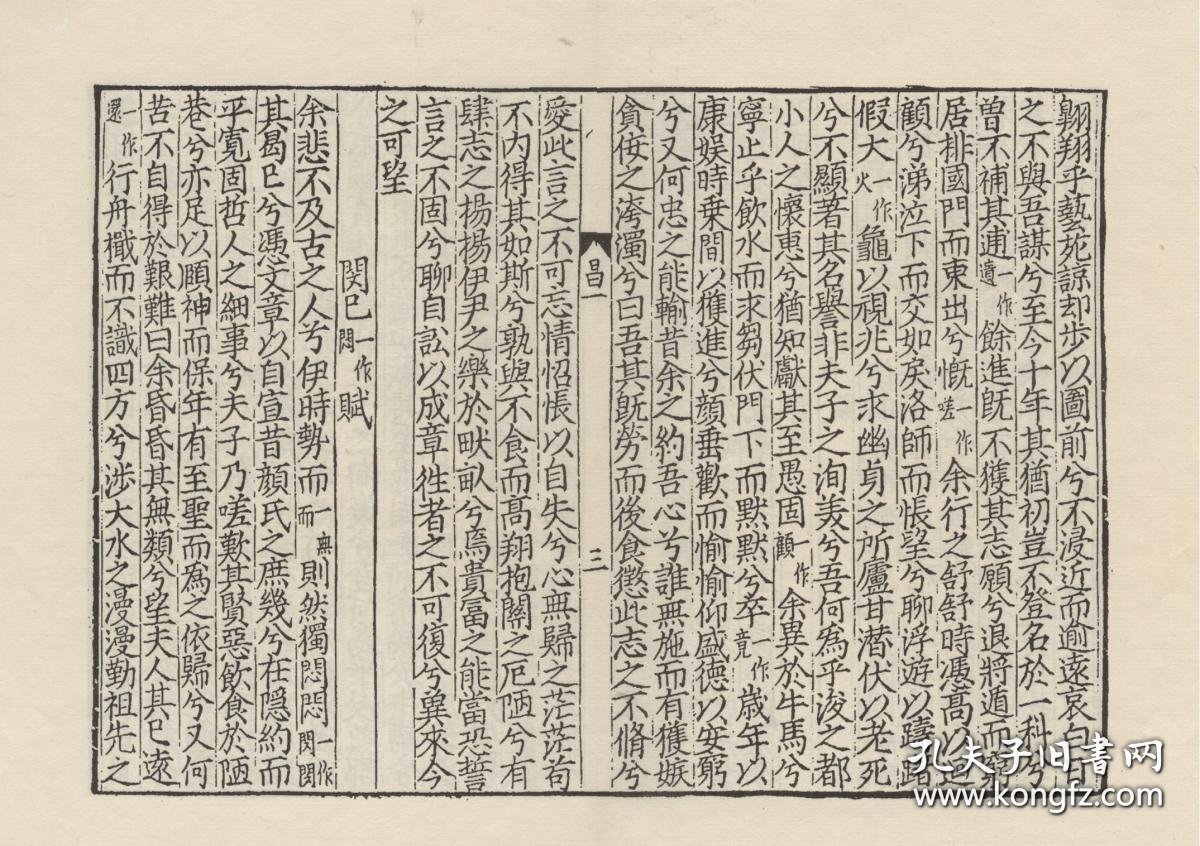 翺翔乎藝苑諒却歩以圖前兮不浸近而逾逺哀白日
之不與吾謀兮至今十年其猶初豈不登名於一科兮
曽不補其逋一作遺餘進旣不獲其志願兮退將遁而
居排國門而東出兮慨一作嗟余行之舒舒時憑髙以
顧兮涕泣下而交如戾洛師而悵望兮聊浮遊以躊躇
假大一作火龜以視兆兮求幽貞之所廬甘潛伏以老死
兮不顯著其名譽非夫子之洵羙兮吾何爲乎浚之都
小人之懷惠兮猶知獻其至愚固一作顧余異於牛馬兮
寧止乎飲水而求芻伏門下而默默兮卒一作竟歲年以
康娱時乗間以獲進兮顔垂歡而愉愉仰盛德以安窮
兮又何忠之能輸昔余之約吾心兮誰無施而有獲嫉
貪佞之洿濁兮曰吾其旣勞而後食懲此志之不脩兮
昌一
三
愛此言之不可忘情怊悵以自失兮心無歸之茫茫苟
不内得其如斯兮孰與不食而髙翔抱關之厄陋兮有
肆志之揚揚伊尹之樂於畎畝兮焉貴富之能當恐誓
言之不固兮聊自訟以成章徃者之不可復兮兾來今
之可望
閔己一作悶賦
余悲不及古之人兮伊時勢而一無而則然獨悶悶一作閔閔
其曷已兮憑文章以自宣昔顔氏之庶幾兮在隱約而
平寛固哲人之細事兮夫子乃嗟歎其賢惡飲食於陋
巷兮亦足以頤神而保年有至聖而爲之依歸兮又何
苦不自得於艱難曰余昏昏其無類兮望夫人其已逺
一作還行舟檝而不識四方兮渉大水之漫漫勤祖先之
孔夫子旧书网
www.kongfz.com